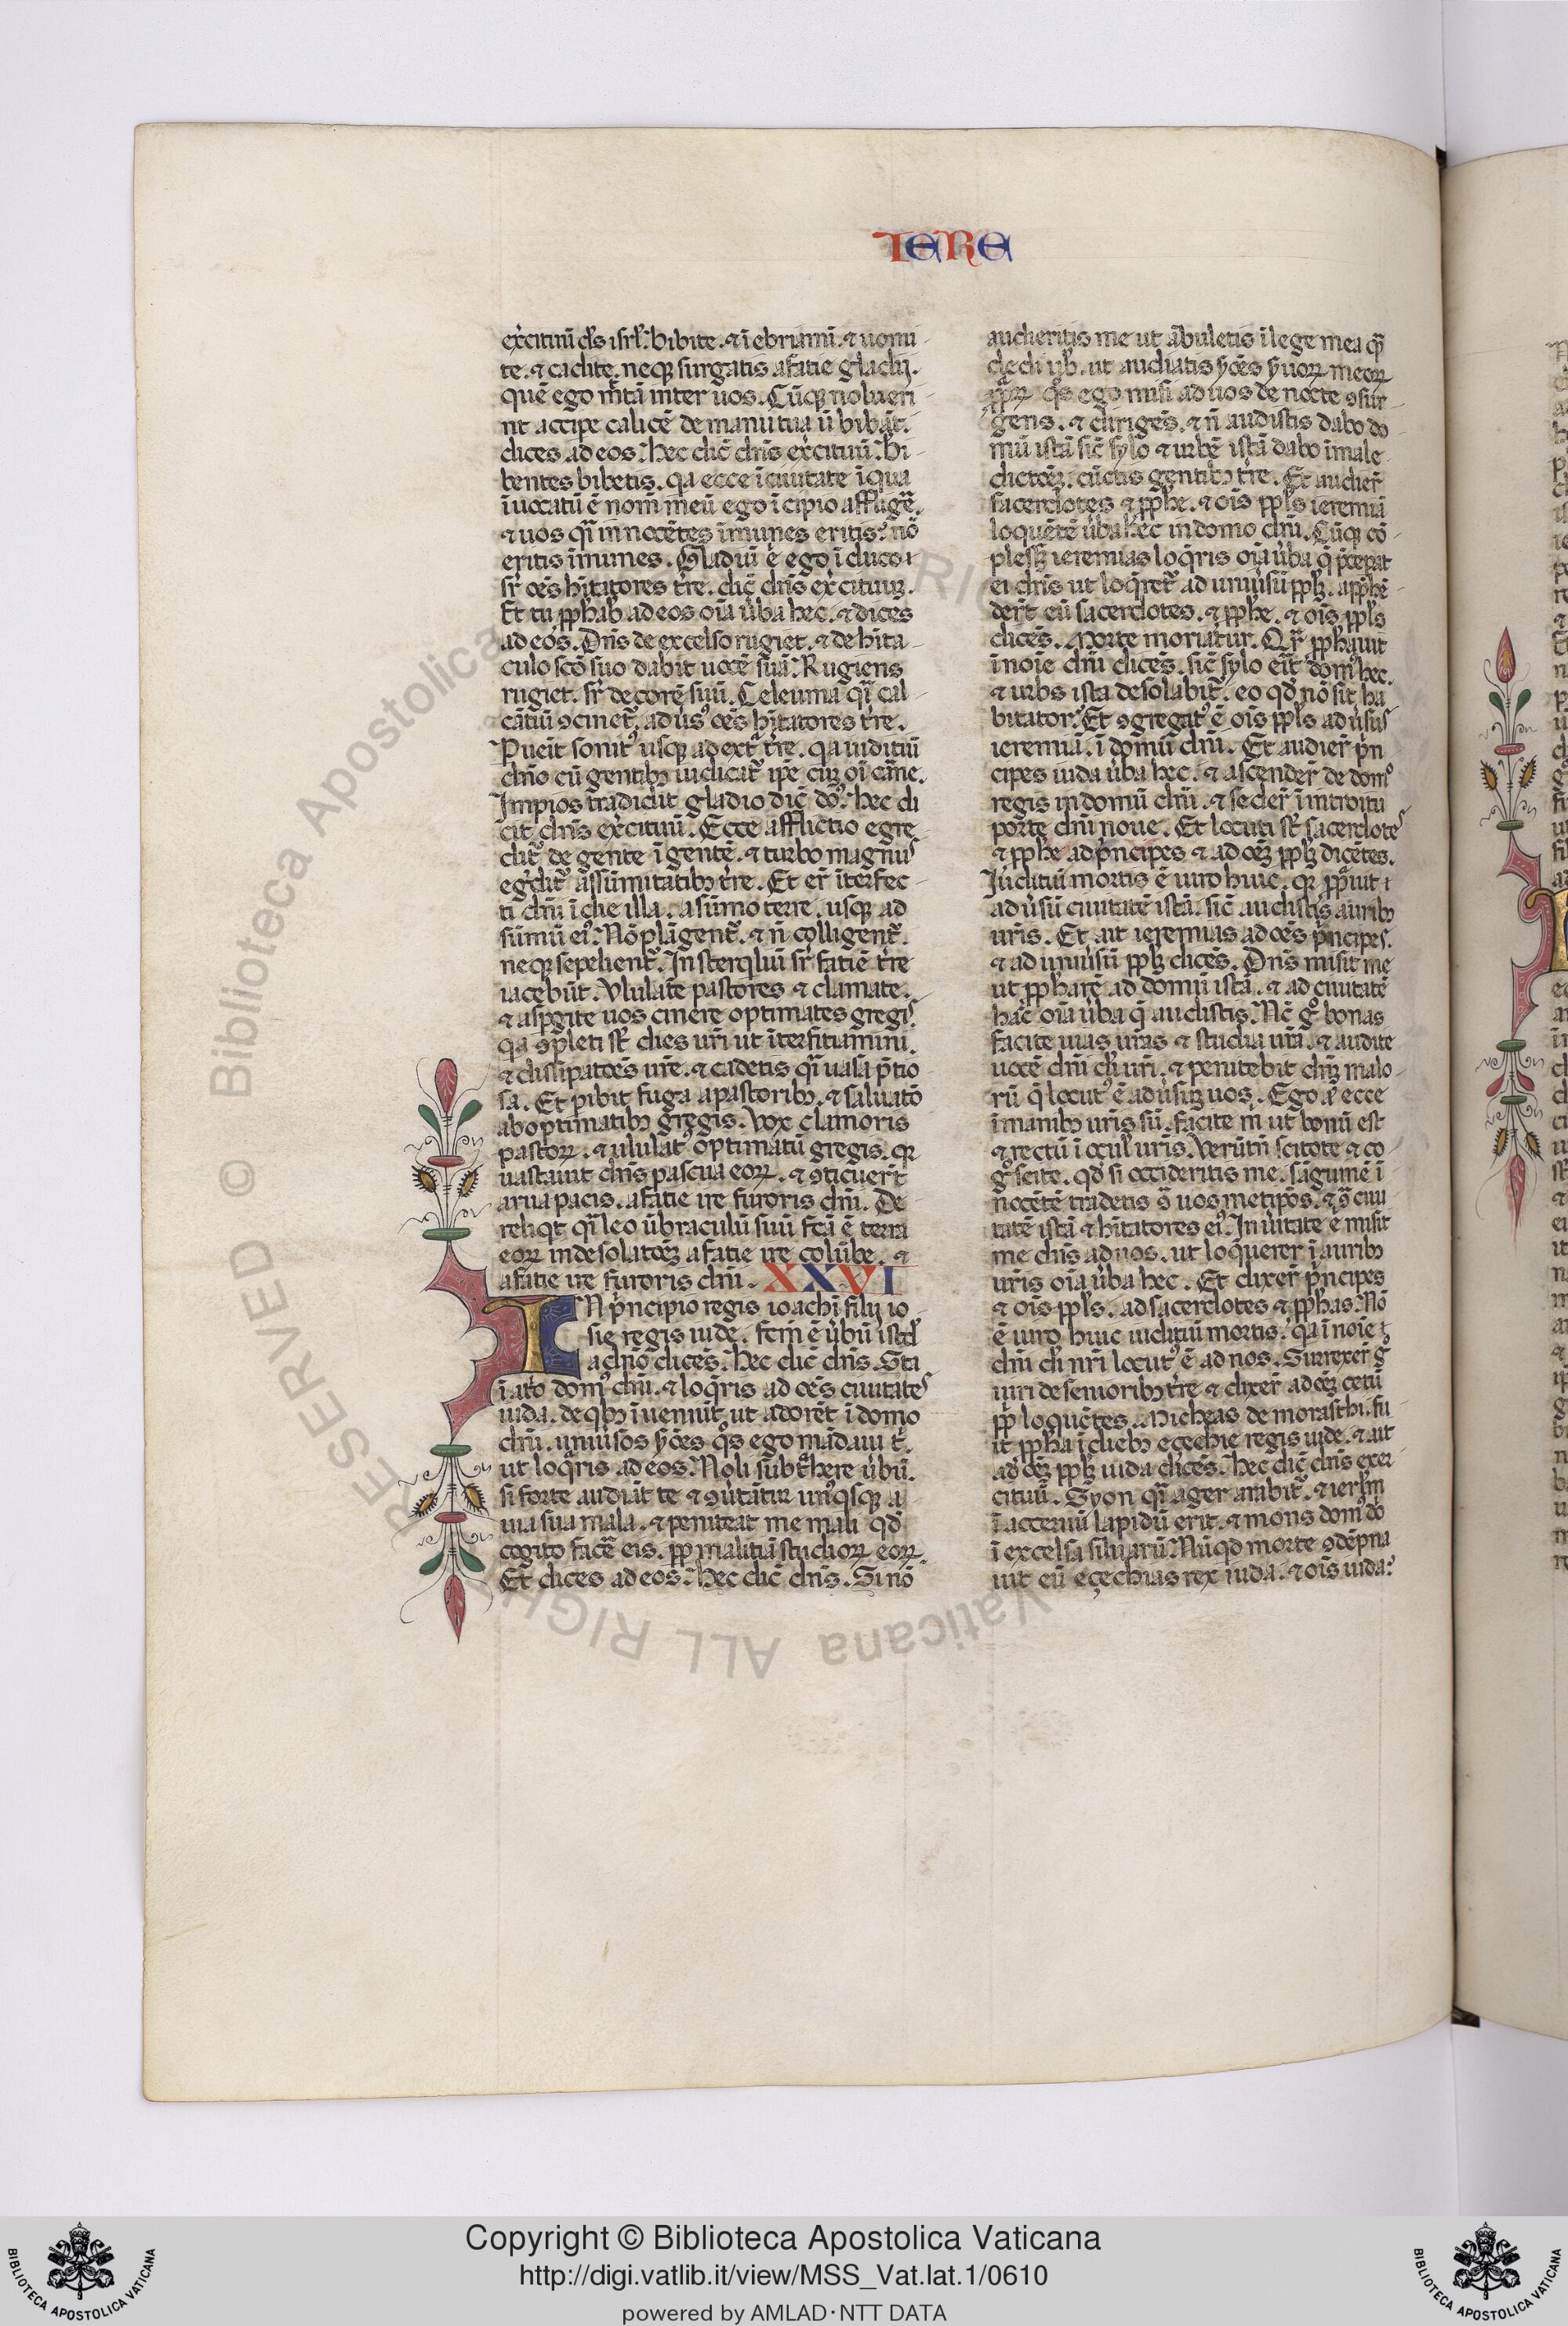 IERE
exͨcituū ds̄ isrl̄. bibite. ⁊ īebriamī. ⁊ uomi
te. ⁊ cadite. neqꝫ surgatis afatie gladij.
quē ego mͭtā inter uos. Cūqꝫ noluerī
nt accipe calicē de manu tua ū bibāt.
dices ad eos. hec dic̄ dn̄s exͨcituū. Bi
bentes bibetis. qa ecce ī ciuitate ī qua
īuocatū ē nom̄ meū ego īcipio affligͤe.
⁊ uos qͣi innocētes īmunes eritis. nō
eritis īmunes. Gladiū ē ego īduco
sr̄ oēs hītatores tr̄e. dic̄ dn̄s exͨcituuꝫ.
Et tu ꝓphab̄ ad eos oīa u̇ba hec. ⁊ dices
ad eos. Dn̄s de excelso rugiet. ⁊ de hita
culo sc̄o suo dabit uocē suā. Rugiens
rugiet. sr̄ decorē suū. Celeuma qͣi cal
cātiū ꝯcinet̄. adu̇sꝰ oēs hītatores tr̄e.
Pueīt sonitꝰ usqꝫ ad extͣ tr̄e. qa iuditiū
dn̄o cū gentibꝫ iudicat̄ ip̄e cuꝫ oī carne.
Impios tradidit gladio dic̄ dn̄s. hec di
cit dn̄s exͨcituū. Ecce afflictio egre
dit̄ de gente ī gentē. ⁊ turbo magnus
egͤdit̄ a sūmitatibꝫ tr̄e. Et er̄ īterfec
ti dn̄i ī die illa. a sūmo terre. usqꝫ ad
sūmū eiꝰ. Nō plāgent̄. ⁊ n̄ colligent̄.
neqꝫ sepelient̄. In sterqͥliniū sr̄ fatiē tr̄e
iacebūt. Vlulate pastores ⁊ clamate.
⁊ aspgite uos cinere optimates gregis.
qa ꝯpleti st̄ dies ur̄i ut īterfitiamini.
⁊ dissipatoēs ur̄e. ⁊ cadetis qͣi uasa pͤtio
sa. Et pibit fuga a pastoribꝫ. ⁊ saluatō
ab optimatibꝫ gregis. Vox clamoris
pastoꝝ. ⁊ ululatꝰ optimatū gregis. qr
uastauit dn̄s pascua eoꝝ. ⁊ ꝯticuert̄
arua pacis. afatie ire furoris dn̄i. De
reliqt qͣi leo ūbraculū suū fc̄a ē terra
eoꝝ indesolatoēꝫ afatie ire colūbe. ⁊
afatie ire furoris dn̄i. XXVI
IN pͥncipio regis ioachī filij io
sie regis iude. fcm̄ ē u̇bū istd̄
a dn̄o dicēs. hec dic̄ dn̄s. Sta
ī atͥo domꝰ dn̄i. ⁊ loqͣris ad oēs ciuitates
iuda. de qͥbꝫ īueniūt ut adorēt ī domo
dn̄i. uniu̇sos s̄ōes qͦs ego mādaui tͥ.
ut loqͣris ad eos. Noli subtͣhere u̇bū.
si forte audiāt te ⁊ ꝯu̇tātur unꝰqͥsqꝫ a
uia sua mala. ⁊ peniteat me mali qd̄
cogito facͤe eis. ꝓp malitiā studioꝝ eoꝝ.
Et dices ad eos. hec dic̄ dn̄s. Si nō
audieritis me ut ābuletis ī lege mea qͣ
dedi ub̄. ut audiatis s̄ōes s̄uoꝝ meoꝝ
ꝓphaꝝ qͦs ego misi ad uos de nocte ꝯsur
gens. ⁊ dirigēs. ⁊ n̄ audistis dabo do
mū istā sic̄ sylo ⁊ urbē istā dabo ī male
dictoēꝫ. cūctis gentibꝫ tr̄e. Et audier̄
sacerdotes ⁊ ꝓphe. ⁊ oīs ppl̄s ieremiā
loquētē u̇ba hec in domo dn̄i. Cūqꝫ cō
plesseꝫ ieremias loqͣris oīa u̇ba q̄ pͤceperat
ei dn̄s ut loqͣret̄ ad uniu̇sū pplꝫ. appͤhē
dert̄ eū sacerdotes. ⁊ ꝓphe. ⁊ oīs ppl̄s
dicēs. Morte moriatur. Qr̄ ꝓphauit
ī noīe dn̄i dicēs. sic̄ sylo erit domꝰ hec.
⁊ urbs ista desolabit̄. eo qd̄ nō sit ha
bitator. Et ꝯgregatꝰ ē oīs ppl̄s adu̇sus
ieremiā. ī domū dn̄i. Et audier̄ pͥn
cipes iuda u̇ba hec. ⁊ ascender̄ de domo
regis in domū dn̄i. ⁊ seder̄ ī introitu
porte dn̄i noue. Et locuti st̄ sacerdotes
⁊ ꝓphe ad pͥncipes ⁊ ad oēꝫ pplꝫ dicētes.
Iuditiū mortis ē uiro huic. qr ꝓphauit
adu̇sū ciuitatē istā. sic̄ audistis auribꝫ
ur̄is. Et ait ieremias ad oēs pͥncipes.
⁊ ad uniu̇sū pplꝫ dicēs. Dn̄s misit me
ut ꝓpharē ad domū istā. ⁊ ad ciuitatē
hāc oīa u̇ba q̄ audistis. Nc̄ gͦ bonas
facite uias ur̄as ⁊ studia ur̄a. ⁊ audite
uocē dn̄i di̅ ur̄i. ⁊ penitebit dn̄ꝫ malo
rū q̄ locutꝰ ē adu̇suꝫ uos. Ego aͧ ecce
ī manibꝫ ur̄is sū. facite m̄ ut bonū est
⁊ rectū ī ocul̄ ur̄is. Verūtn̄ scitote ⁊ co
gͦscite. qd̄ si occideritis me. sāguinē ī
nocētē tradetis ꝯͣ uos metip̄os. ⁊ ꝯͣ ciui
tatē istā ⁊ hītatores eiꝰ. In u̇itate ē misit
me dn̄s ad uos. ut loquerer ī auribꝫ
ur̄is oīa u̇ba hec. Et dixer̄ pͥncipes
⁊ oīs ppl̄s. ad sacerdotes ⁊ ꝓphas. Nō
ē uiro huic iuditiū mortis. qa ī noīe
dn̄i di̅ nr̄i locutꝰ ē ad nos. Surrexer̄ gͦ
uiri de senioribꝫ tr̄e ⁊ dixer̄ ad oēꝫ cetū
ppl̄i loquētes. Micheas de morasthi. fu
it ꝓpha ī diebꝫ eçechie regis iude. ⁊ ait
ad oēꝫ pplꝫ iuda dicēs. hec dic̄ dn̄s exer
cituū. Syon qͣi ager arabit̄. ⁊ ierlm̄
ī aceruū lapidū erit. ⁊ mons domꝰ dō
ī excelsa siluarū. Nūqd morte ꝯdēpna
uit eū eçechias rex iuda. ⁊ oīs iuda.
Copyright © Biblioteca Apostolica Vaticana
http://digi.vatlib.it/view/MSS_Vat.lat.1/0610
powered by AMLAD·NTT DATA
BIBLIOTECA APOSTOLICA VATICANA
BIBLIOTECA APOSTOLICA VATICANA
© Biblioteca Apostolica Vaticana ALL RIGHTS RESERVED